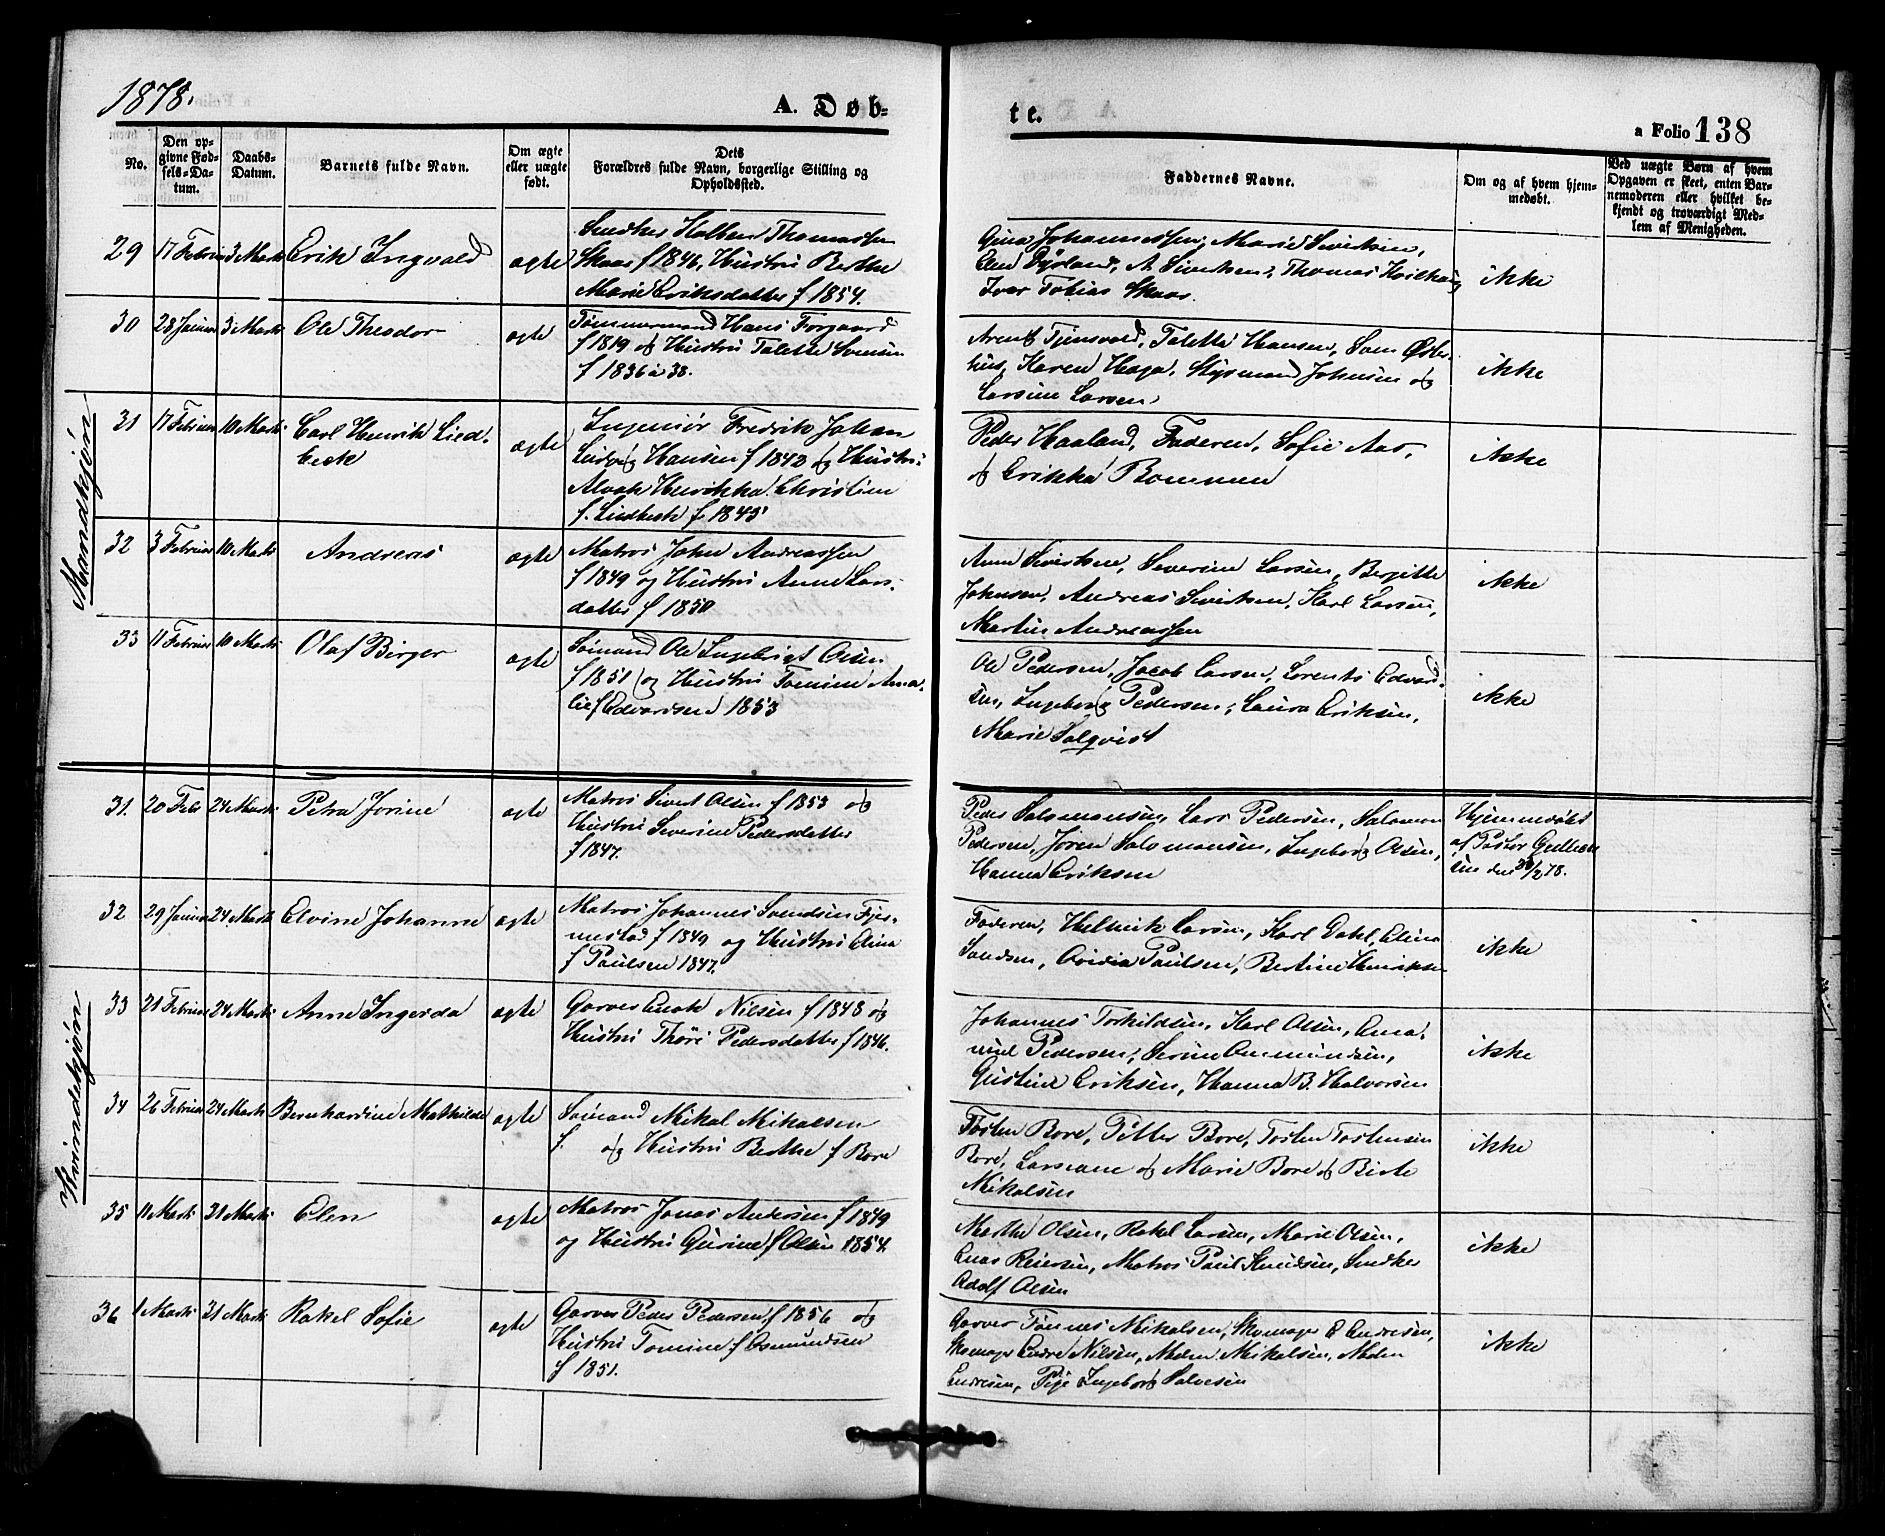 1878.
A. Døb-
te.
a Folio 138
No.
Den op-
givne Fød-
sels-Da-
tum.
Daabs-
Datum.
Barnets fulde Navn.
Om ægte
eller uægte
født.
Dets
Forældres fulde Navn, borgerlige Stilling og
Opholdssted.
Faddernes Navne.
Om og af hvem hjem-
medøbt.
Ved uægte Børn af hvem
Opgaven er skeet, enten Bar-
nemoderen eller hvilket be-
kjendt og troværdigt Med-
lem af Menigheden.
Mandkjøn
29 17 Februar 3 Marts Erik Ingvald ægte
Snedker Kolben Thomassen
Skaar f 1846, Hustru Berthe
Marie Eriksdatter f 1854.
Gina Johannessen, Marie Sivertsen,
Elen Dyrland, A Sivertsen, Thomas Kvilhaug
Ivar Tobias Skaar.
ikke
30 28 Januar 3 Marts Ole Theodor ægte
Tømmermand Hans Forgaard
f 1819 og Hustru Talette Svensen
f 1836 à 38.
Arent Tjensvold, Talette Hansen, Sam Øster-
hus, Karen Haga, Styrmand Johnsen og
Larsine Larsen,
ikke
31 17 Februar 10 Marts Carl Henrik Lied-
beck
ægte
Ingeniør Fredrik Johan
Ludvig Hansen f 1842 og Hustru
Alvak Henrikka Christine
f. Liedbeck f 1843
Peder Haaland, Faderen, Sofie Aas,
og Erikka Bommen
ikke
32 3 Februar 10 Marts Andreas ægte
Matros John Andreassen
f 1849 og Hustru Anne Lars-
datter f 1850
Anne Sivertsen, Severine Larsen, Bergitte
Johnsen, Andreas Sivertsen, Karl Larsen,
Martin Andreassen
ikke
33 11 Februar 10 Marts Olaf Birger ægte
Sømand Ole Ingebrigt Olsen
f 1851 og Hustru Tomine Ama-
lie f Edvardsen 1853
Ole Pedersen, Jacob Larsen, Lorents Edvard-
sen, Ingeborg Pedersen, Laura Eriksen,
Marie Salqvist
ikke
Kvindekjøn
31. 20 Febr 24 Marts Petra Jorine ægte
Matros Sivert Olsen f 1853 og
Hustru Severine Pedersdatter
f 1847.
Peder Salomonsen, Lars Pedersen, Salomon
Pedersen, Jøren Salomonsen, Ingeborg Olsen,
Hanna Eriksen
Hjemmedøbt
af Pastor Gullik
sen den /2 78.
32 29 Januar 24 Marts Elvine Johanne ægte
Matros Johannes Svendsen Fjer-
mestad f 1849 og Hustru Elina
f Paulsen 1847.
Faderen, Helmik Larsen, Karl Dahl, Elina
Svendsen, Ovidia Paulsen, Bertine Henriksen
ikke
33 21 Februar 24 Marts Anne Ingerda ægte
Garver Enok Nilsen f 1848 og
Hustru Thøri Pedersdatter f 1846.
Johannes Torkildsen, Karl Olsen, Ema-
nuel Pedersen, Serine Ommundsen,
Gustine Eriksen, Hanna B. Halvorsen
ikke
34 26 Februar 24 Marts Bernhardine Mathilde ægte
Sømand Mikal Mikalsen
f. og Hustru Berthe f Bore
Tosten Bore, Petter Bore, Tosten Tostensen
Bore, Larsiane og Marie Bore og Birte
Mikalsen
ikke
35 11 Marts 31 Marts Elen ægte
Matros Jonas Andersen f 1849
og Hustru Gurine f Olsen 1854.
Marthe Olsen, Rakel Larsen, Marie Olsen,
Enas Reiersen, Matros Paul Knudsen, Snedker
Adolf Olsen
ikke
36 1 Marts 31 Marts Rakel Sofie ægte
Garver Peder Pedersen f 1856 og
Hustru Tomine f Osmundsen
f 1851.
Garver Tønnes Mikalsen, Skomager E Endresen,
Skomager Endre Nilsen, Malen Mikalsen, Malen
Endresen, Pige Ingeborg Salvesen
ikke